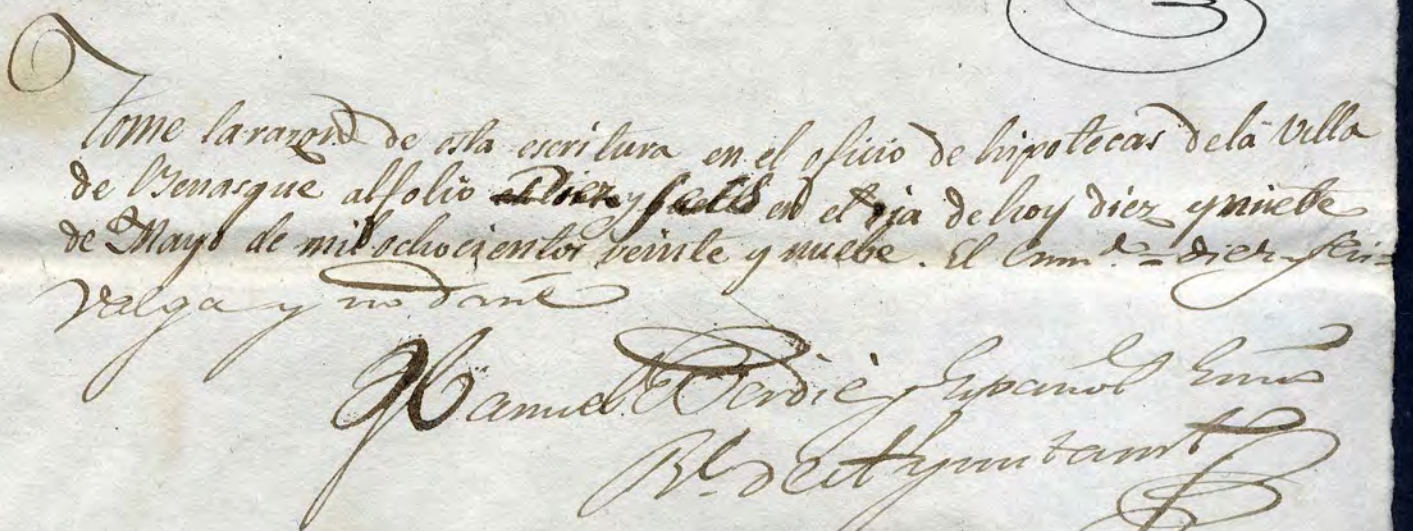 Tome la razon de esta escritura en el oficio de hipotecas de la Villa
de Benasque al folio Diez y seis en el dia de hoy diez y nuebe
de Mayo de mil ochocientos veinte y nuebe. El Enm.do = diez y seis =
Valga y no dañe
Manuel Ferdié y Español Essno
Rl. del Ayuntamto